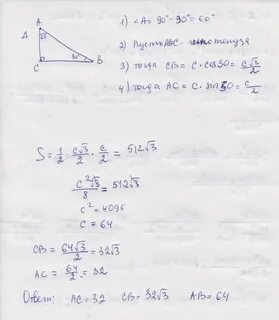 A
Δ
60°
C
30°
B
1) ∠A = 90° - 30° = 60°
2) Пусть AB = c - гипотенуза
3) тогда CB = c · cos30 = c√3/2
4) тогда AC = c · sin30 = c/2
S = 1/2 · c√3/2 · c/2 = 512√3
c²√3/8 = 512√3
c² = 4096
c = 64
CB = 64√3/2 = 32√3
AC = 64/2 = 32
Ответ: AC = 32 CB = 32√3 AB = 64